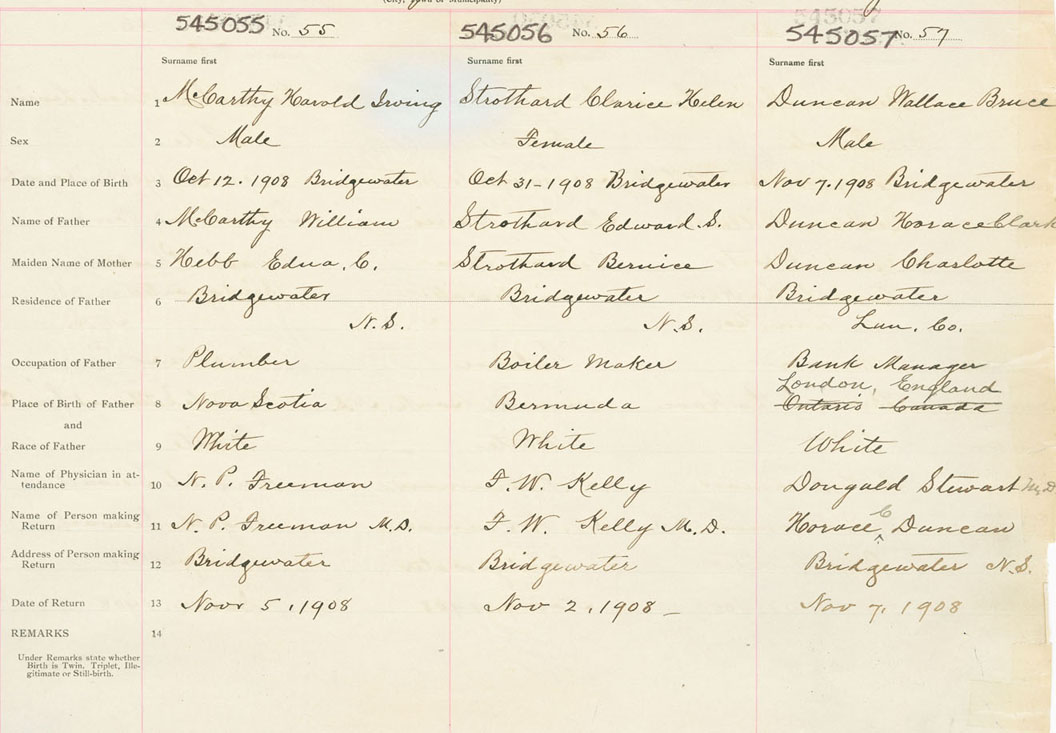 (City, Town or Municipality)
545055 No. 55 545056 No. 56 545057 No. 57
Surname first Surname first Surname first
Name 1 McCarthy Harold Irving Strothard Clarice Helen Duncan Wallace Bruce
Sex 2 Male Female Male
Date and Place of Birth 3 Oct 12. 1908 Bridgewater Oct 31-1908 Bridgewater Nov 7. 1908 Bridgewater
Name of Father 4 McCarthy William Strothard Edward. S. Duncan Horace Clark
Maiden Name of Mother 5 Hebb Edna. C. Strothard Bernice Duncan Charlotte
Residence of Father 6 Bridgewater Bridgewater Bridgewater
N.S. N.S. Lun. Co.
Occupation of Father 7 Plumber Boiler Maker Bank Manager
London, England
Place of Birth of Father 8 Nova Scotia Bermuda Ontario Canada
and
Race of Father 9 White White White
Name of Physician in at-
tendance 10 N. P. Freeman F. W. Kelly Dougald Stewart M.D
Name of Person making
Return 11 N. P. Freeman M.D. F. W. Kelly M.D. Horace C Duncan
Address of Person making
Return 12 Bridgewater Bridgewater Bridgewater N.S.
Date of Return 13 Novr 5, 1908 Nov 2, 1908 - Nov 7, 1908
REMARKS 14
Under Remarks state whether
Birth is Twin. Triplet, Ille-
gitimate or Still-birth.